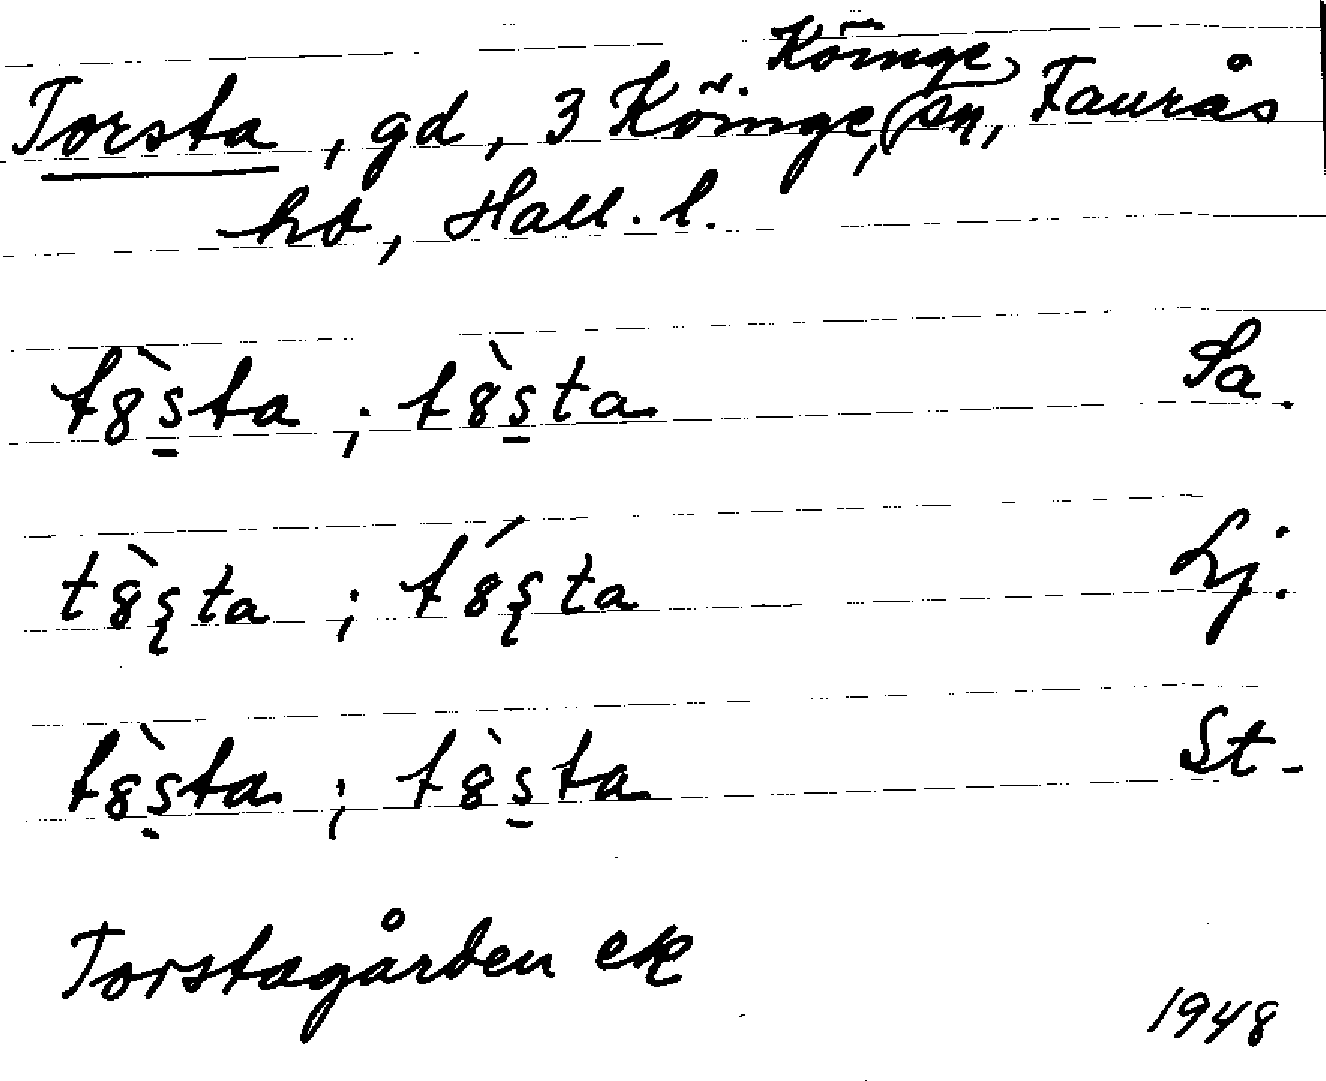 Torsta, gd, 3 Köinge, Köinge sn, Faurås
hd, Hall. l.
t8̀s̲ta ; t8̀s̲ta Sa.
t8̀s̨ta ; t8́s̨ta Lj.
t8̀s̲ta ; t8̀s̲ta St.
Torstagården ek
1948